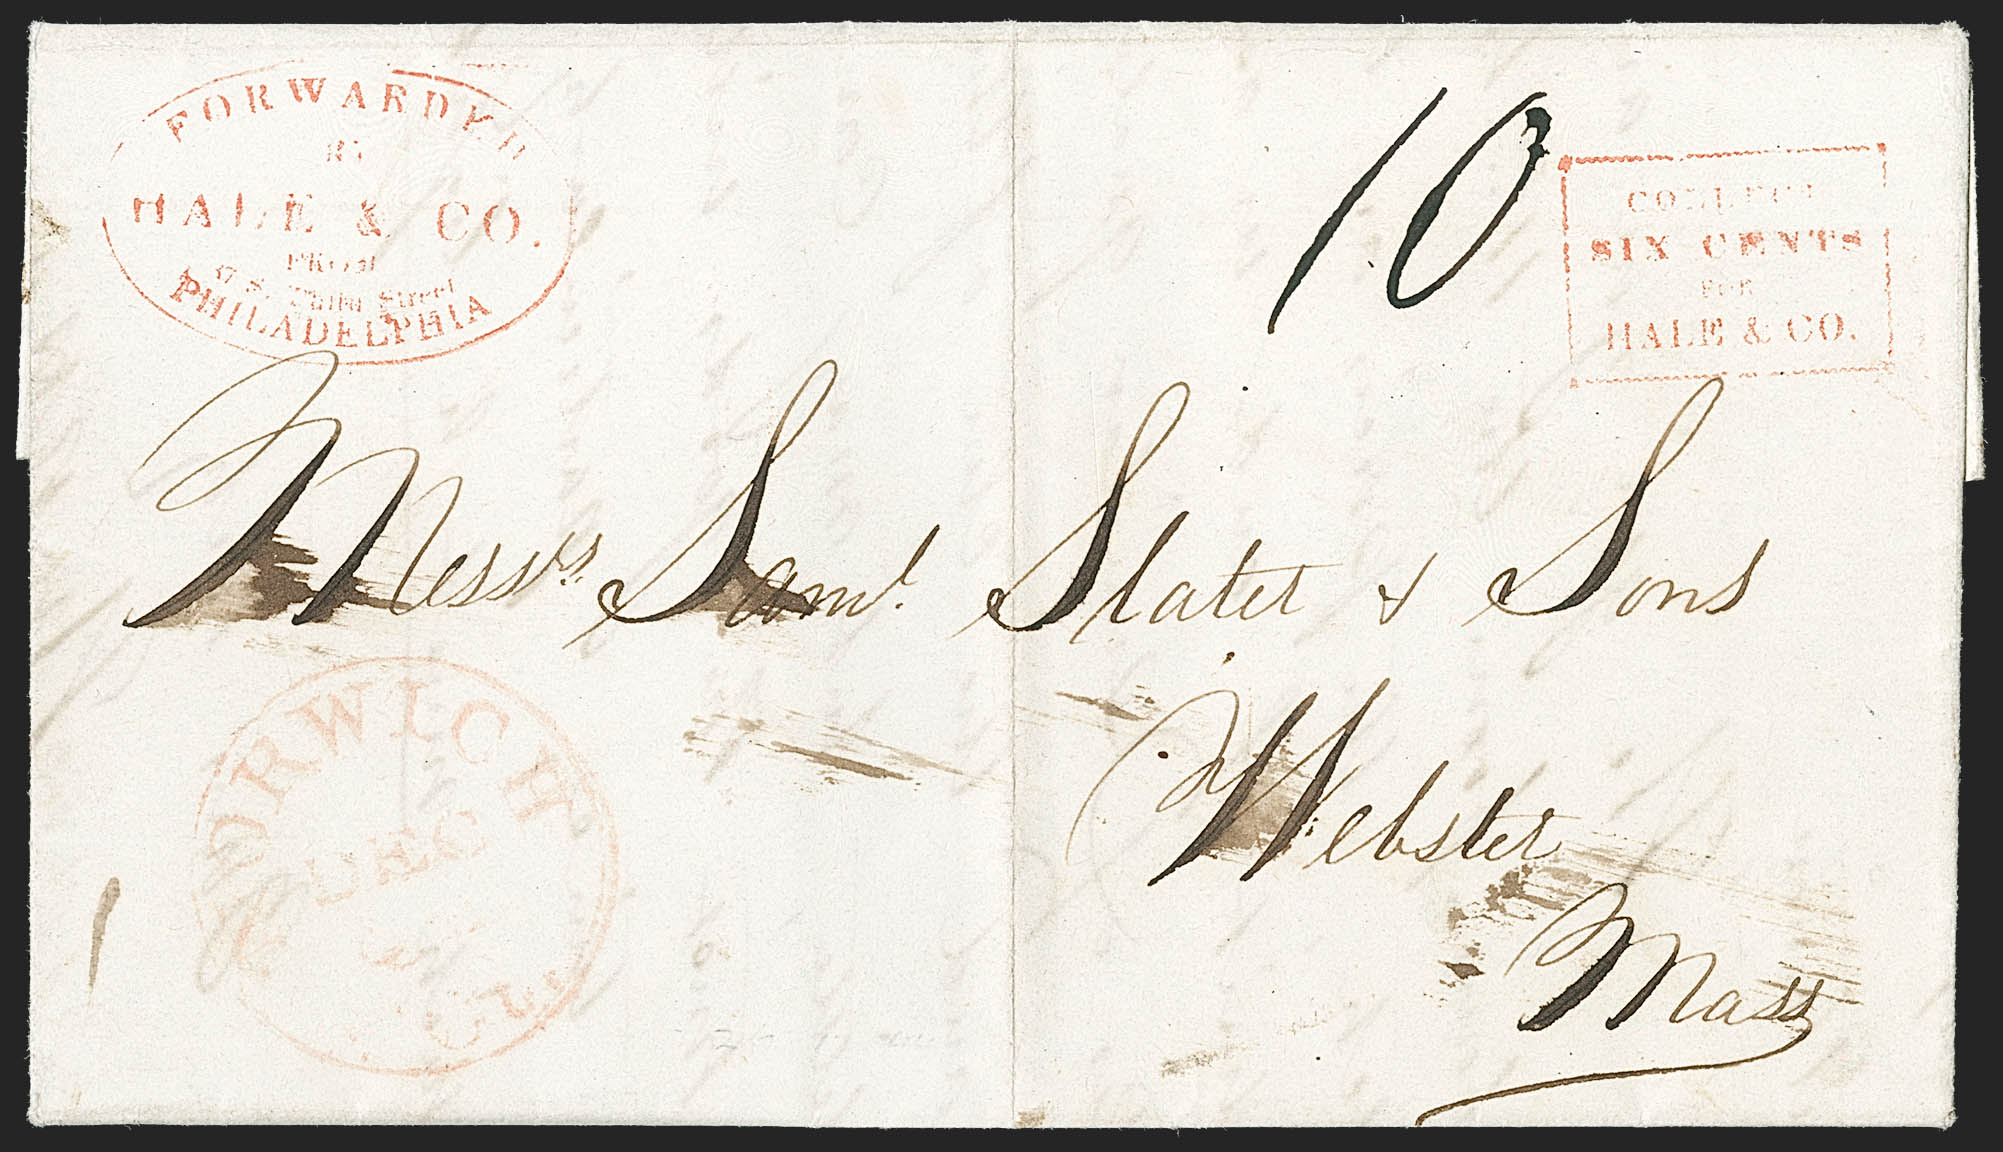 FORWARDED
BY
HALE & CO.
FROM
37 S. Third Street
PHILADELPHIA
10
COLLECT
SIX CENTS
FOR
HALE & CO.
Messrs. Saml. Slater & Sons
Webster
Mass
NORWICH
DEC
CT.